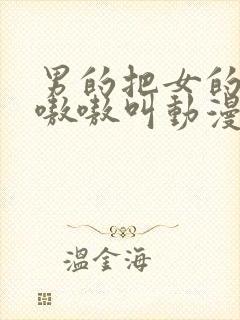 男的把女的
嗷嗷叫動漫
溫金海